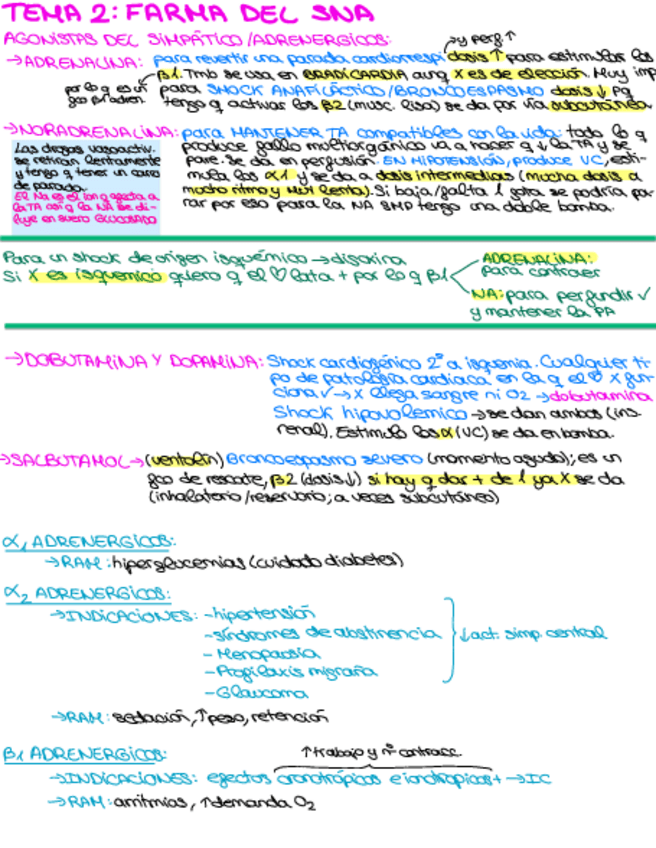 TEMA 2: FARMA DEL SNA
AGONISTAS DEL SIMPÁTICO/ADRENERGICOS:
→y perf.↑
→ADRENALINA: para revertir una parada cardiorrespi dosis↑ para estimular los
β1. Tmb se usa en BRADICARDIA aunq X es de elección. Muy imp
por lo q es un
fco βadren.
para SHOCK ANAFILÁCTICO/BRONCOESPASMO dosis↓ pq
tengo q activar los β2 (musc. liso) se da por vía subcutánea.
→NORADRENALINA: para MANTENER TA compatibles con la vida: todo lo q
produce fallo multiorgánico va a hacer q ↓ la TA y se
pare. Se da en perfusión. EN HIPOTENSIÓN, produce VC, esti-
mula los α1 y se da a dosis intermedias (mucha dosis a
mucho ritmo y MUY lenta). Si baja/falta 1 gota se podría pa-
rar por eso para la NA SMP tengo una doble bomba.
Las drogas vasoactiv.
se retiran lentamente
y tengo q tener un carro
de parada.
El Na es el ion q afecta a
la TA así q la NA se di-
luye en suero GLUCOSADO
Para un shock de origen isquémico → digoxina
Si X es isquemico quiero q el ♡ lata + por lo q β1
ADRENALINA:
para contraer
NA: para perfundir ✓
y mantener la PA
→DOBUTAMINA Y DOPAMINA: Shock cardiogénico 2º a isquemia. Cualquier ti-
po de patología cardiaca en la q el ♡ X fun-
ciona ✓ → X llega sangre ni O2 → dobutamina
Shock hipovolemico → se dan ambas (ins.
renal). Estimula los α (VC) se da en bomba.
→SALBUTAMOL → (ventolin) Broncoespasmo severo (momento agudo); es un
fco de rescate, β2 (dosis↓) si hay q dar + de 1 ya X se da
(inhalatorio/reservorio; a veces subcutáneo)
α1 ADRENERGICOS:
→RAM: hiperglucemias (cuidado diabetes)
α2 ADRENERGICOS:
→INDICACIONES: -hipertensión
-síndromes de abstinencia
- Menopausia
- Profilaxis migraña
-Glaucoma
↓act. simp. central
→RAM: sedación, ↑peso, retención
β1 ADRENERGICOS:
↑trabajo y nº contracc.
→INDICACIONES: efectos cronotrópicos e ionotropicos + → IC
→RAM: arritmias, ↑demanda O2